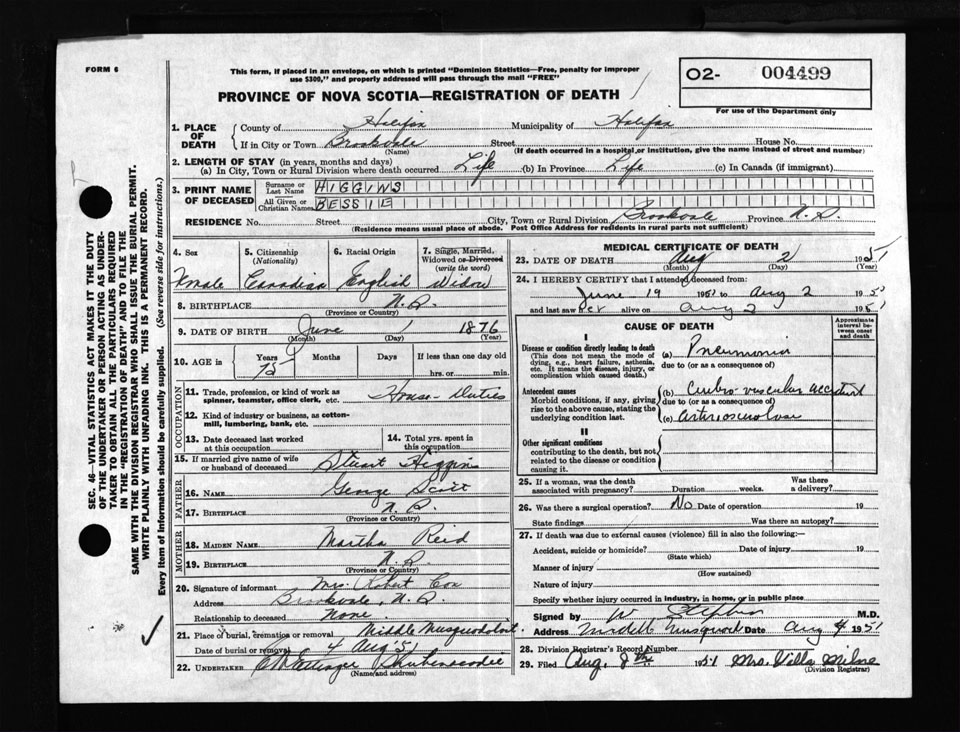 FORM 6
This form, if placed in an envelope, on which is printed "Dominion Statistics—Free, penalty for improper
use $300," and properly addressed will pass through the mail "FREE"
O2- 004499
For use of the Department only
PROVINCE OF NOVA SCOTIA—REGISTRATION OF DEATH
1. PLACE OF DEATH { County of Halifax Municipality of Halifax
If in City or Town Brookvale Street House No.
(Name) (If death occurred in a hospital or institution, give the name instead of street and number)
2. LENGTH OF STAY (in years, months and days)
(a) In City, Town or Rural Division where death occurred Life (b) In Province Life (c) In Canada (if immigrant)
3. PRINT NAME OF DECEASED { Surname or Last Name HIGGINS
All Given or Christian Names BESSIE
RESIDENCE No. Street City, Town or Rural Division Brookvale Province N.S.
(Residence means usual place of abode. Post Office Address for residents in rural parts not sufficient)
4. Sex Female
5. Citizenship (Nationality) Canadian
6. Racial Origin English
7. Single, Married, Widowed or Divorced (write the word) Widow
8. BIRTHPLACE N.S.
(Province or Country)
9. DATE OF BIRTH June 1 1876
(Month) (Day) (Year)
10. AGE in { Years 75 Months Days If less than one day old
hrs. or min.
OCCUPATION
11. Trade, profession, or kind of work as
spinner, teamster, office clerk, etc. House-Duties
12. Kind of industry or business, as cotton-
mill, lumbering, bank, etc.
13. Date deceased last worked
at this occupation
14. Total yrs. spent in
this occupation
15. If married give name of wife
or husband of deceased Stuart Higgins
FATHER
16. NAME George Scott
17. BIRTHPLACE N.S.
(Province or Country)
MOTHER
18. MAIDEN NAME Martha Reid
19. BIRTHPLACE N.S.
(Province or Country)
20. Signature of informant Mrs. Robert Cox
Address Brookvale, N.S.
Relationship to deceased None.
21. Place of burial, cremation or removal Middle Musquodoboit
Date of burial or removal 4 Aug 51
22. UNDERTAKER Shubenacadie
(Name and address)
MEDICAL CERTIFICATE OF DEATH
23. DATE OF DEATH Aug 2 1951
(Month) (Day) (Year)
24. I HEREBY CERTIFY that I attended deceased from:
June 19 1951 to Aug 2 1951
and last saw her alive on Aug 2 1951
CAUSE OF DEATH
Approximate interval between onset and death
I
Disease or condition directly leading to death
(This does not mean the mode of
dying, e.g., heart failure, asthenia,
etc. It means the disease, injury, or
complication which caused death.)
(a) Pneumonia
due to (or as a consequence of)
Antecedent causes
Morbid conditions, if any, giving
rise to the above cause, stating the
underlying condition last.
(b) vascular accident
due to (or as a consequence of)
(c)
II
Other significant conditions
contributing to the death, but not
related to the disease or condition
causing it.
25. If a woman, was the death
associated with pregnancy? Duration weeks. Was there
a delivery?
26. Was there a surgical operation? No Date of operation 19
State findings Was there an autopsy?
27. If death was due to external causes (violence) fill in also the following:—
Accident, suicide or homicide? Date of injury 19
(State which)
Manner of injury
(How sustained)
Nature of injury
Specify whether injury occurred in industry, in home, or in public place
Signed by M.D.
Address Date Aug 4 1951
28. Division Registrar's Record Number
29. Filed Aug. 8th 1951 Mrs. Villa Milne
(Division Registrar)
SEC. 46—VITAL STATISTICS ACT MAKES IT THE DUTY
OF THE UNDERTAKER OR PERSON ACTING AS UNDER-
TAKER TO OBTAIN ALL THE PARTICULARS REQUIRED
IN THE "REGISTRATION OF DEATH" AND TO FILE THE
SAME WITH THE DIVISION REGISTRAR WHO SHALL ISSUE THE BURIAL PERMIT.
WRITE PLAINLY WITH UNFADING INK. THIS IS A PERMANENT RECORD.
Every item of information should be carefully supplied. (See reverse side for instructions.)